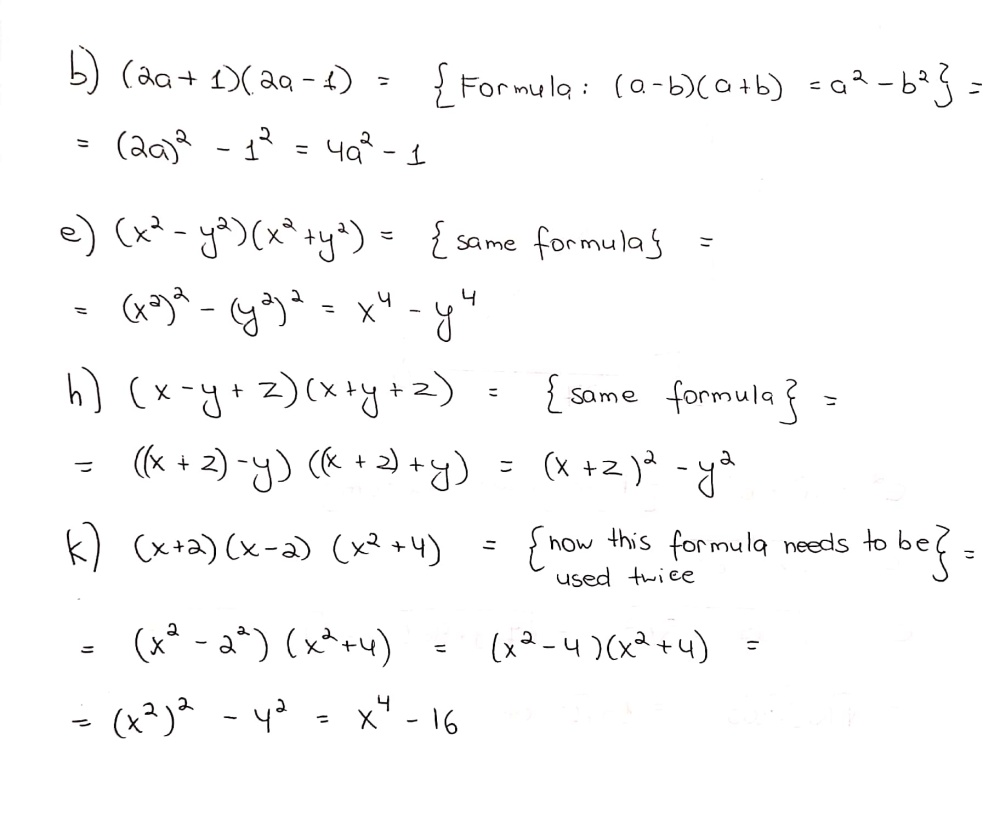 b) (2a + 1)(2a - 1) = { Formula: (a-b)(a+b) = a² - b² } =
= (2a)² - 1² = 4a² - 1
e) (x² - y²)(x² + y²) = { same formula } =
= (x²)² - (y²)² = x⁴ - y⁴
h) (x - y + z)(x + y + z) = { same formula } =
= ((x + z) - y) ((x + z) + y) = (x + z)² - y²
k) (x+2)(x-2) (x² + 4) = { now this formula needs to be } =
used twice
= (x² - 2²) (x² + 4) = (x² - 4)(x² + 4) =
= (x²)² - 4² = x⁴ - 16